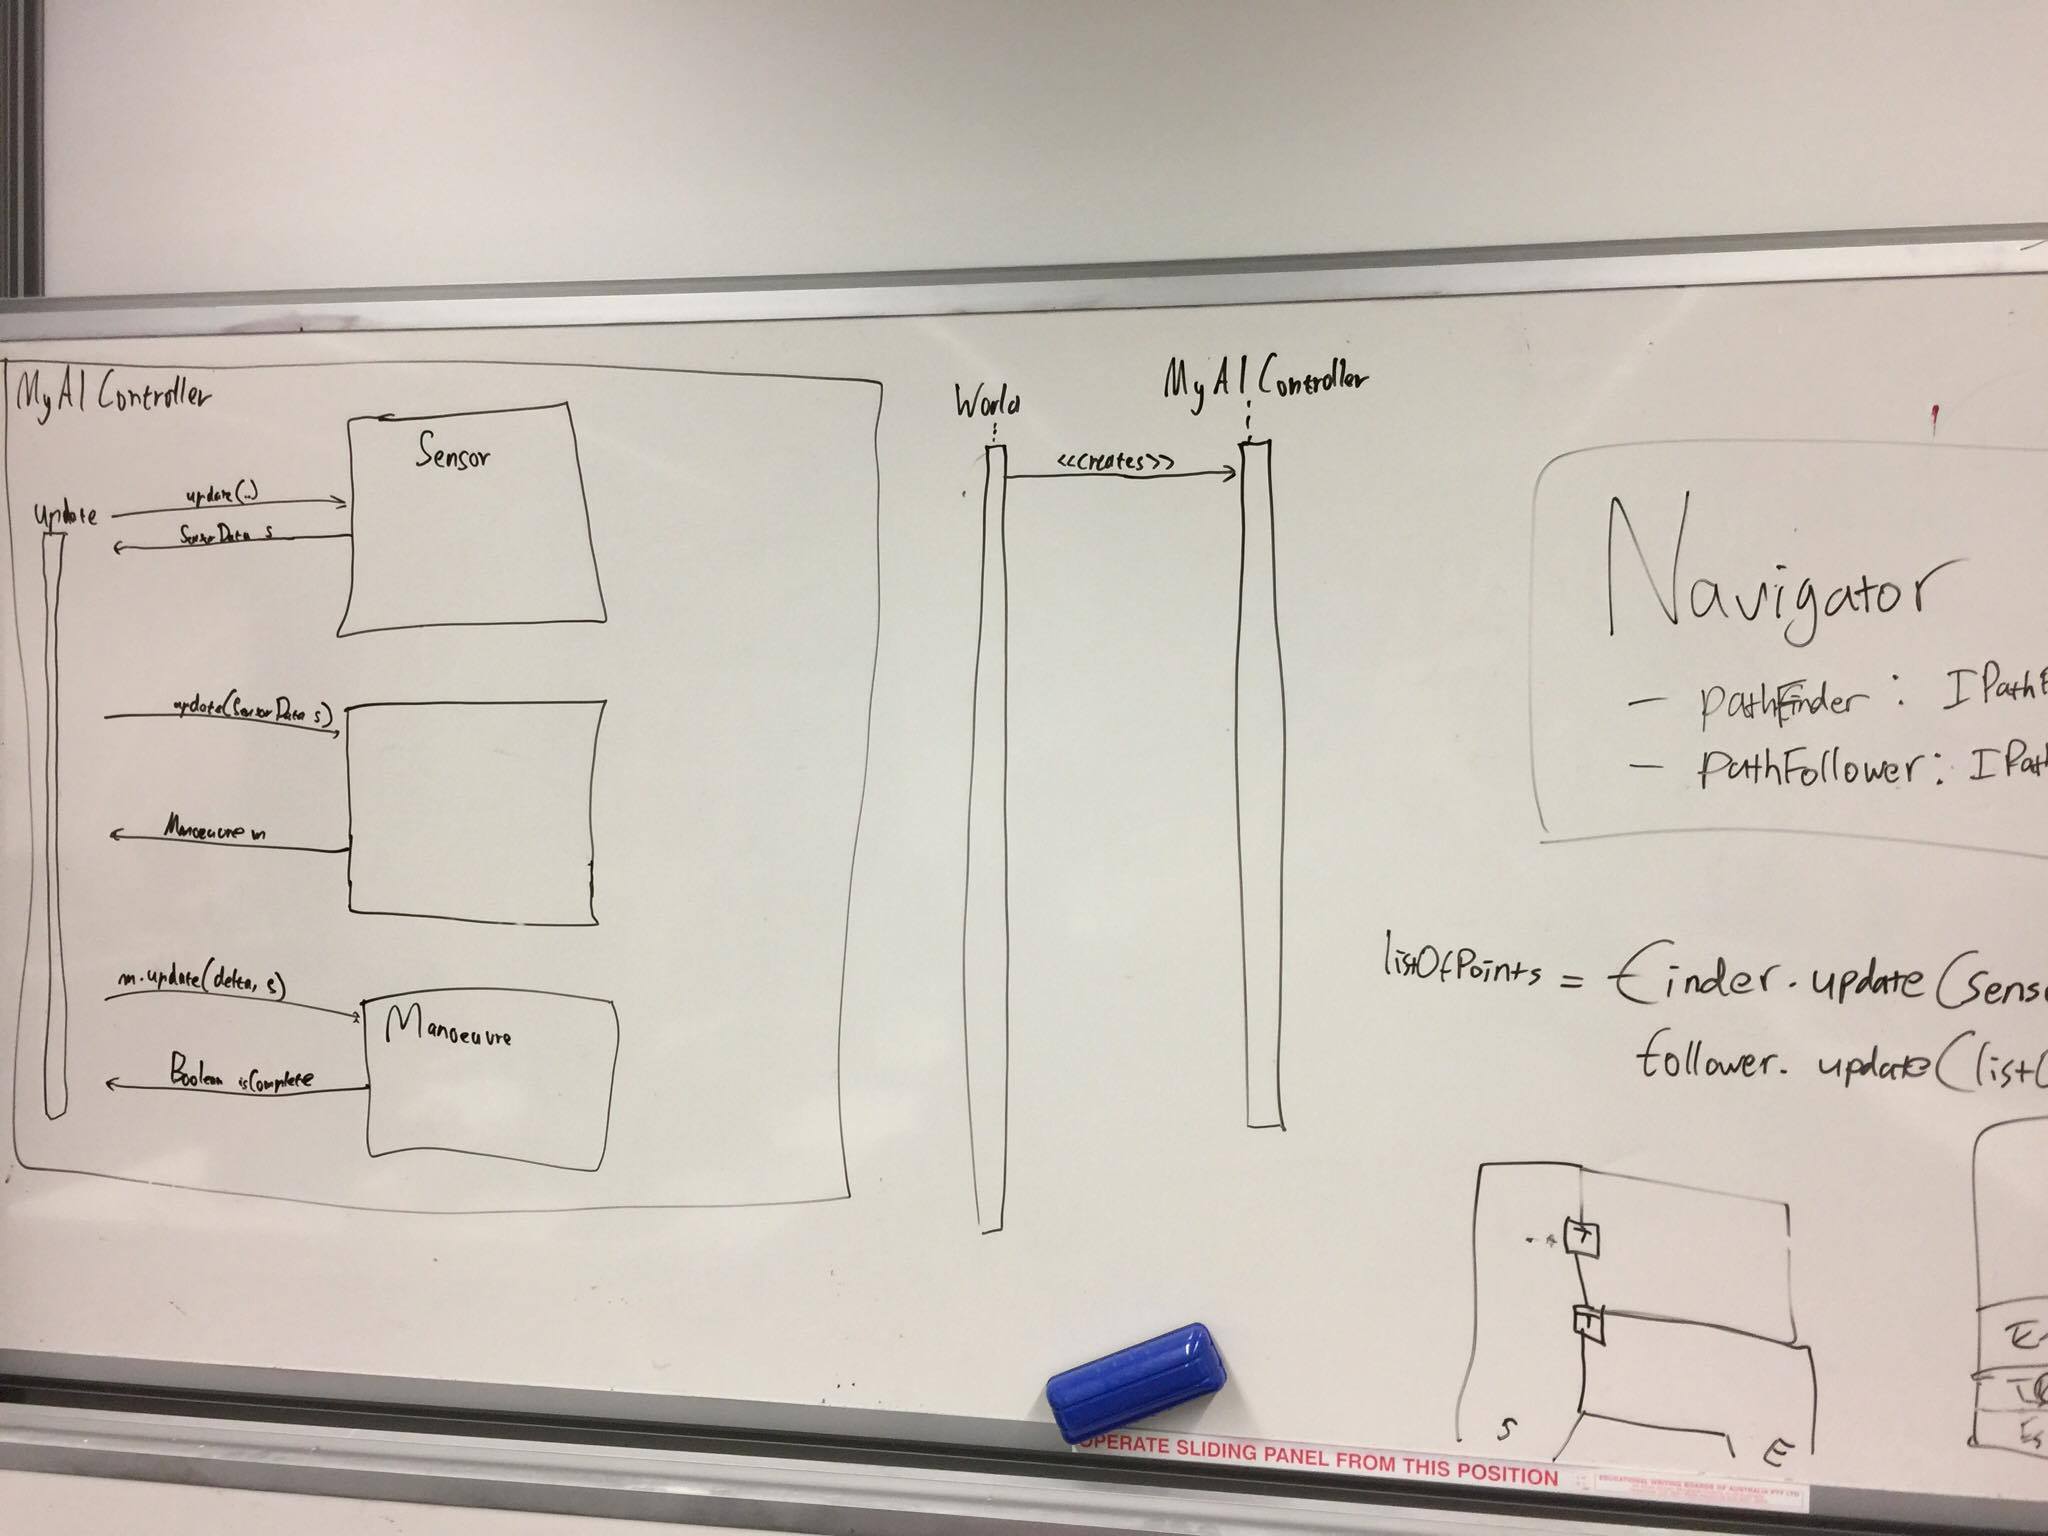 MyAIController
Sensor
update
update(..)
SensorData s
update(SensorData s)
Manoeuvre m
m.update(delta, s)
Manoeuvre
Boolean isComplete
World
MyAIController
<<creates>>
Navigator
- pathFinder : IPathF
- pathFollower : IPath
listOfPoints = finder.update(senso
follower.update(listO
T
T
S
E
OPERATE SLIDING PANEL FROM THIS POSITION
EDUCATIONAL WRITING BOARDS OF AUSTRALIA PTY LTD